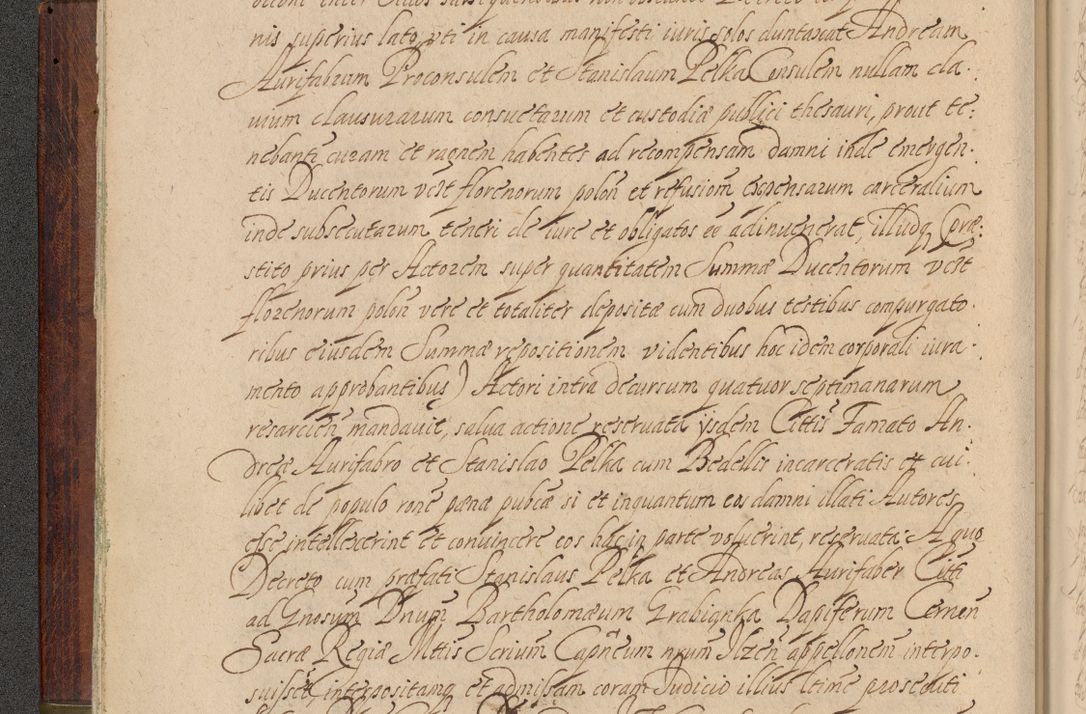 nis superius lato, uti in causa manifesti iuris solos duntaxat Andream
Aurifabrum Proconsulem et Stanislaum Pełka Consulem nullam cla-
uium clausurarum consuetarum et custodiæ publici thesauri, prout te-
nebant curam et raonem habentes ad recompensam damni inde emergen-
tis Ducentorum vdt florenorum polon et refusiom expensarum carceralium
inde subsecutarum teneri de iure et obligatos eē adinuenerat, illudq (præ-
stito prius per Actorem super quantitatem Summæ Ducentorum vdt
florenorum polon vere et totaliter depositæ cum duobus testibus compurgato-
ribus eiusdem Summæ repositionem videntibus hoc idem corporali iura-
mento approbantibus) Actori intra decursum quatuor septimanarum
resarcien mandauit, salua actione reseruata ÿsdem Cittis Famato An-
dreæ Aurifabro et Stanislao Pełka cum Bedellis incarceratis et cui-
libet de populo rone pænæ pubcæ si et inquantum eos damni illati Autores
esse intellexerint et conuincere eos hac in parte voluerint, reseruata. A quo
Decreto cum præfati Stanislaus Pełka et Andreas Aurifaber Citti
ad Gnosum Dnum Bartholomæum Grabianka Dapiferum Cernen
Sacræ Regiæ Mttis Scrium Capneum nrum Ilzen appellonem interpo-
suisset, interpositamq et admisam coram Judicio illius ltime prosecuti